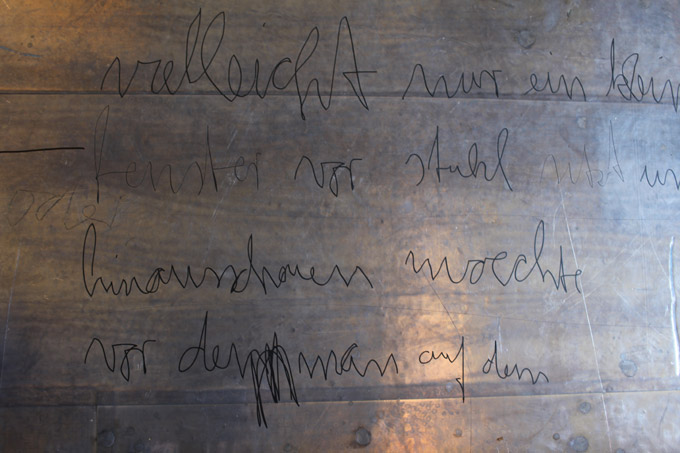 vielleicht nur ein klein
fenster vor stuhl
hinausschauen moechte
vor dem man auf dem